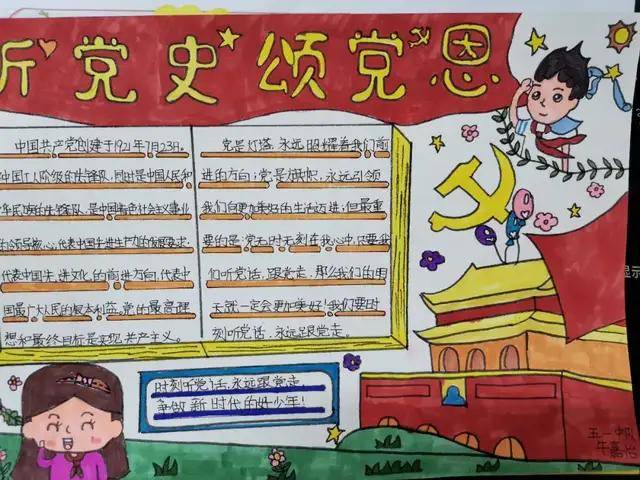 听党史 颂党恩
中国共产党创建于1921年7月23日。
中国工人阶级的先锋队,同时是中国人民和
中华民族的先锋队,是中国特色社会主义事业
的领导核心,代表中国先进生产力的发展要求,
代表中国先进文化的前进方向,代表中
国最广大人民的根本利益。党的最高理
想和最终目标是实现共产主义。
党是灯塔,永远照耀着我们前
进的方向;党是旗帜,永远引领
我们向更加美好的生活迈进;但最重
要的是:党无时无刻在我心中,只要我
们听党话,跟党走,那么我们的明
天就一定会更加美好!我们要时
刻听党话,永远跟党走。
时刻听党话,永远跟党走
争做新时代的好少年!
五一中队
牛嘉怡
显示